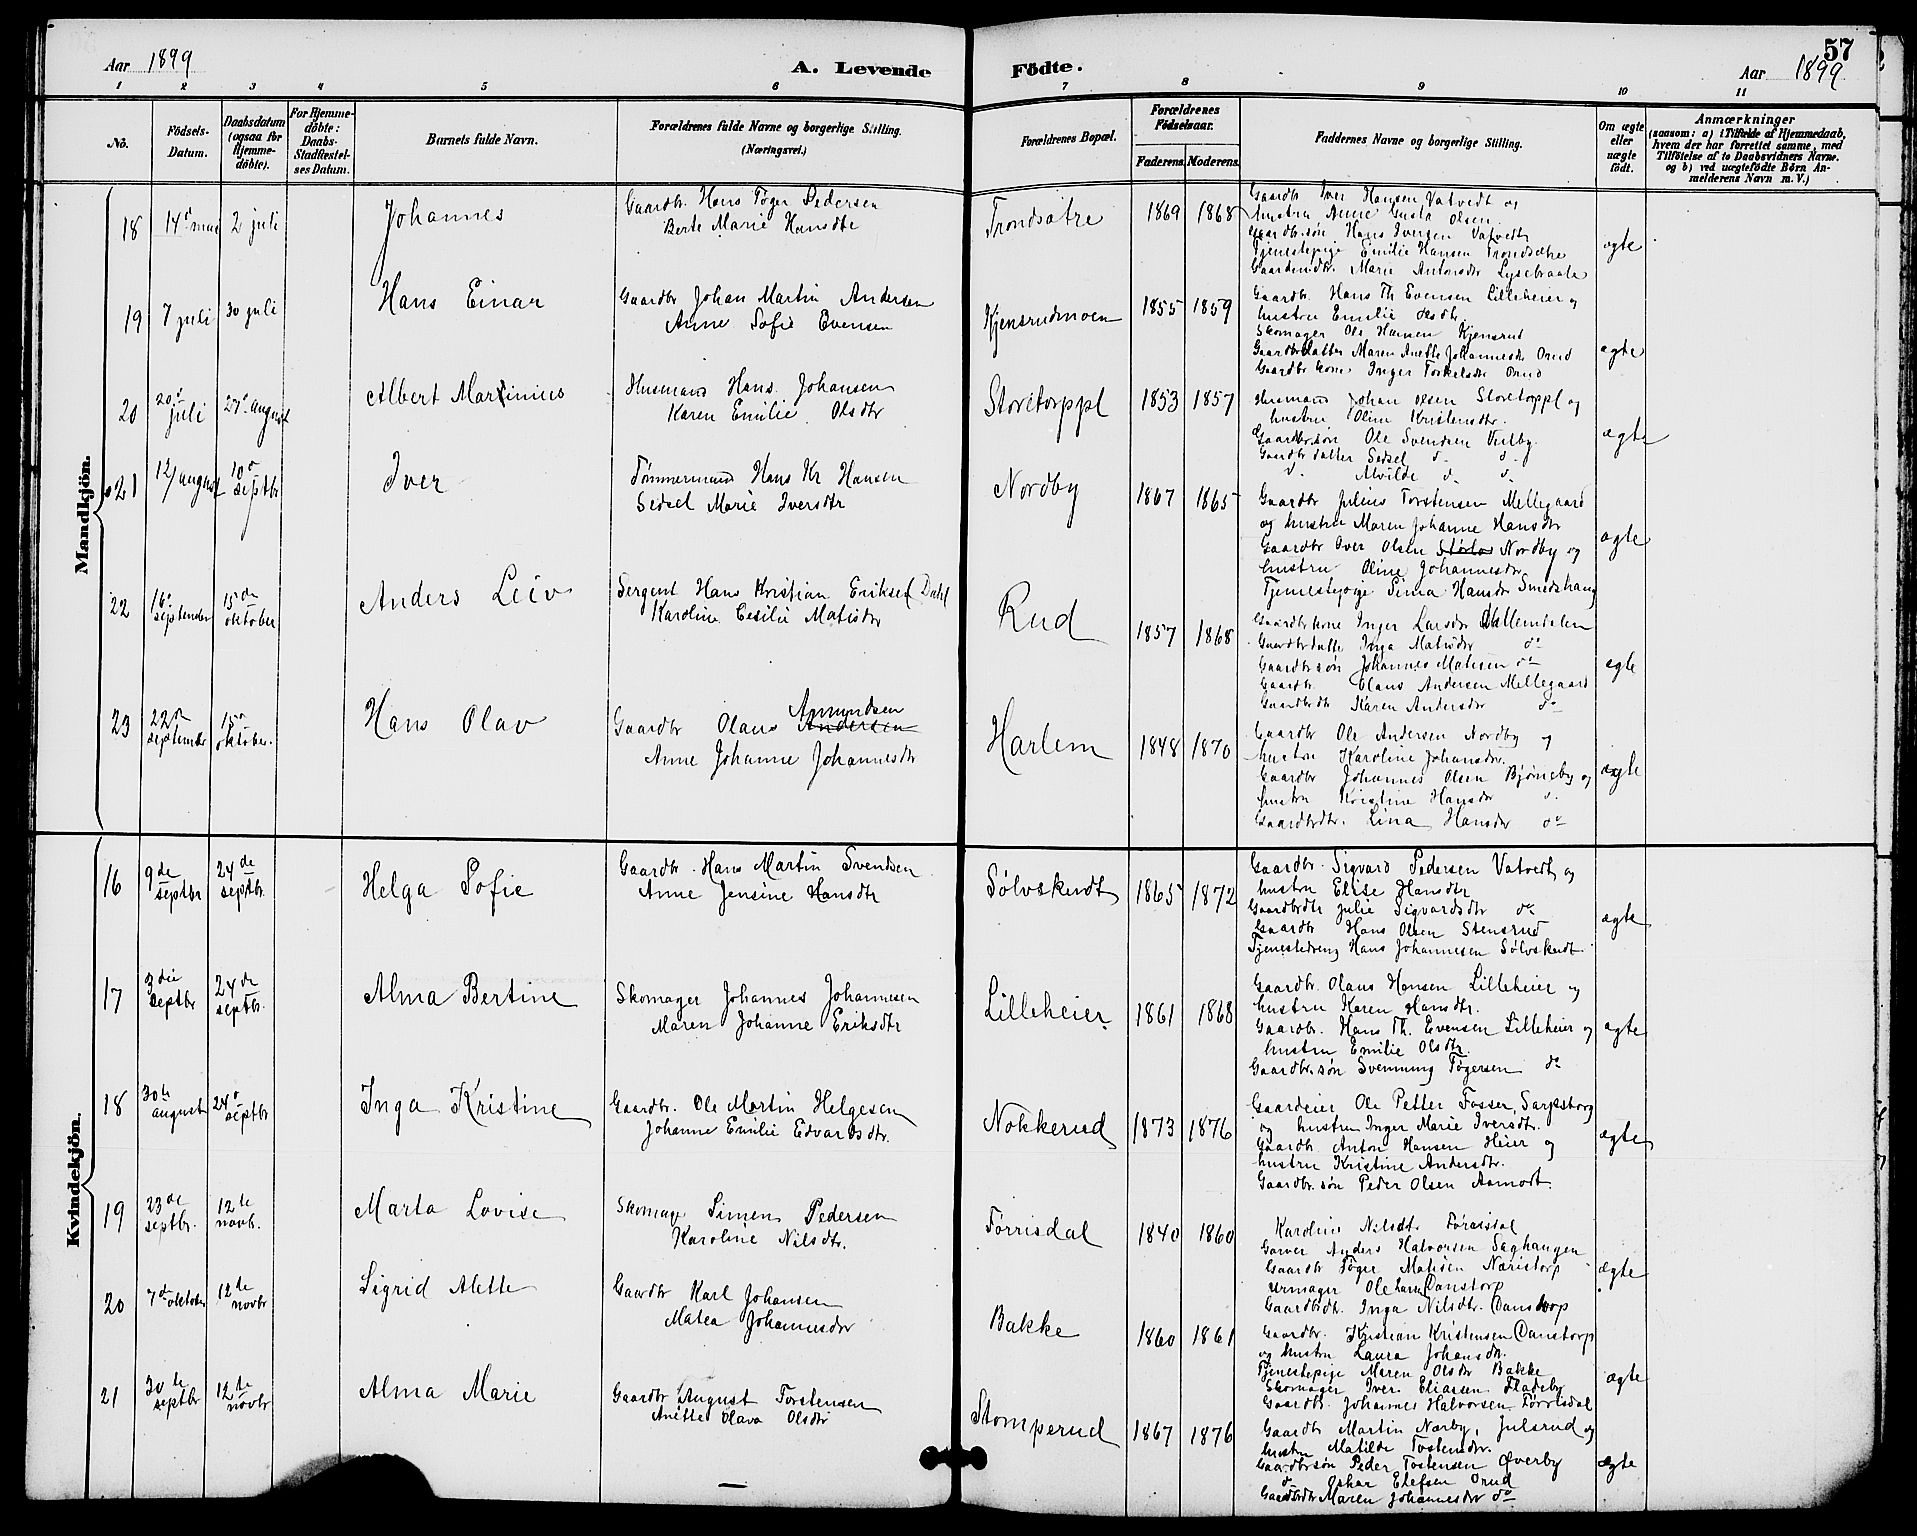 57
Aar 1899
A. Levende Födte.
Aar 1899
1 2 3 4 5 6 7 8 9 10 11
No.
Födsels-Datum.
Daabsdatum (ogsaa for Hjemmedöbte).
For Hjemmedöbte: Daabs-Stadfæstelses Datum.
Barnets fulde Navn.
Forældrenes fulde Navne og borgerlige Stilling.
(Næringsvei.)
Forældrenes Bopæl.
Forældrenes Födselsaar.
Faderens. Moderens.
Faddernes Navne og borgerlige Stilling.
Om ægte eller uægte födt.
Anmærkninger
(saasom: a) i Tilfælde af Hjemmedaab, hvem der har forrettet samme, med Tilföielse af to Daabsvidners Navne. og b) ved uægtefödte Börn Anmelderens Navn m. V.)
Mandkjön.
18 14de mai 2 juli Johannes
Gaardbr. Hans Tøger Pedersen
Berte Marie Hansdtr
Trondsætre 1869 1868
Gaardbr Iver Hansen Vatvedt og
hustru Anne Gusta Olsen
Gaardbr.søn Hans Iversen Vatvedt
Tjenestepige Emilie Hansen Trondsætre
Marie Antonsdtr Lysebraate
ægte
19 7 juli 30 juli Hans Einar
Gaardbr Johan Martin Andersen
Anne Sofie Evensen
Kjensrudmoen 1855 1859
Gaardbr. Hans Th. Evensen Lilleheier og
hustru Emilie Olsdtr.
Skomager Ole Hansen Kjensrud
Gaardbrdatter Maren Anette Johannesdtr Orud
Gaardbr kone Inger Torkelsdtr Orud
ægte
20 20de juli 27de august Albert Martinius
Husmand Hans Johansen
Karen Emilie Olsdtr
Storetorppl 1853 1857
Husmand Johan Olsen Storetorppl og
hustru Oline Kristensdtr.
Gaardbr.søn Ole Svendsen
Gaardbr datter Sedsel d. d.
d. Alvilde d. d.
ægte
21 12/ august 10de septbr Iver
Tømmermand Hans Kr Hansen
Sedsel Marie Iversdtr
Nordby 1867 1865
Gaardbr Julius Torstensen Mellegaard
og hustru Maren Johanne Hansdtr
Gaardbr Iver Olsen Nordby og
hustru Oline Johannesdtr
Tjenestepige Sina Hansdtr Smedshaug
ægte
22 16de september 15de oktober Anders Leiv
Sergent Hans Kristian Eriksen (Dahl
Karoline Cesilie Matisdtr
Rud 1857 1868
Gaardbr kone Inger Larsdtr
Gaardbrdatte Inga Matisdtr do
Gaardbr.søn Johannes Matisen do
Gaardbr. Olaus Andersen Mellegaard
Gaardbrdtr Karen Andersdtr do
ægte
23 22de september 15de oktober. Hans Olav
Gaardbr Olaus Amundsen Andersen
Anne Johanne Johannesdtr
Harlem 1848 1870
Gaardbr Ole Andersen Nordby og
hustru Karoline Johansdtr.
Gaardbr Johannes Olsen Bjørneby og
hustru Kristine Hansdtr d.
Gaardbrdtr. Lina Hansdtr do
ægte
Kvindekjön.
16 9de septbr 24de septbr. Helga Sofie
Gaardbr. Hans Martin Svendsen
Anne Jensine Hansdtr
Sølvskudt 1865 1872
Gaardbr. Sigvard Pedersen Vatvedt og
hustru Elise Hansdtr
Gaardbrdtr Julie Sigvardsdtr do
Gaardbr Hans Olsen Stensrud
Tjenestedreng Hans Johannesen Sølvskudt
ægte
17 3die septbr 24de septbr. Alma Bertine
Skomager Johannes Johannesen
Maren Johanne Eriksdtr
Lilleheier. 1861 1868
Gaardbr. Olaus Hansen Lilleheier og
hustru Karen Hansdtr.
Gaardbr. Hans Th. Evensen Lilleheier og
hustru Emilie Olsdtr.
Gaardbr.søn Svenning Tøgersen do
ægte
18 30te august 24de septbr Inga Kristine
Gaardbr. Ole Martin Helgesen
Johanne Emilie Edvardsdtr.
Nokkerud 1873 1876
Gaardeier Ole Petter Fosser, Sarpsborg
og hustru Inger Marie Iversdtr.
Gaardbr Anton Hansen Heier og
hustru Kristine Andersdtr.
Gaardbr.søn Peder Olsen Aamodt.
ægte
19 23de septbr. 12te novb. Marta Lovise
Skomag Simen Pedersen
Karoline Nilsdtr.
Førrisdal 1840 1860
Karoline Nilsdtr Førrisdal
Garver Anders Halvorsen Saghaugen
Gaardbr Tøger Matisen Næristorp
Urmager Ole Danstorp
Gaardbrdtr. Inga Nilsdtr. Danstorp
ægte
20 7de oktober 12te novbr Sigrid Alette
Gaardbr Karl Johansen
Matea Johannesdtr
Bakke 1860 1861
Gaardbr. Kristian Kristensen Danstorp
og hustru Laura Johansdtr.
Tjenestepige Maren Olsdtr Bakke
Skomager Iver Eliassen Fladeby
Gaardb. Johannes Halvorsen Førrisdal
ægte
21 30te septbr 12te novbr Alma Marie
Gaardbr August Torstensen
Anette Olava Olsdtr
Stomperud 1867 1876
Gaardbr Martin Nærby, Julsrud og
hustru Matilde Tostensdtr.
Gaardbrsøn Peder Tostensen Øverby
d. Oskar Elefsen Orud
Gaardbrdtr Maren Johannesdtr do
ægte